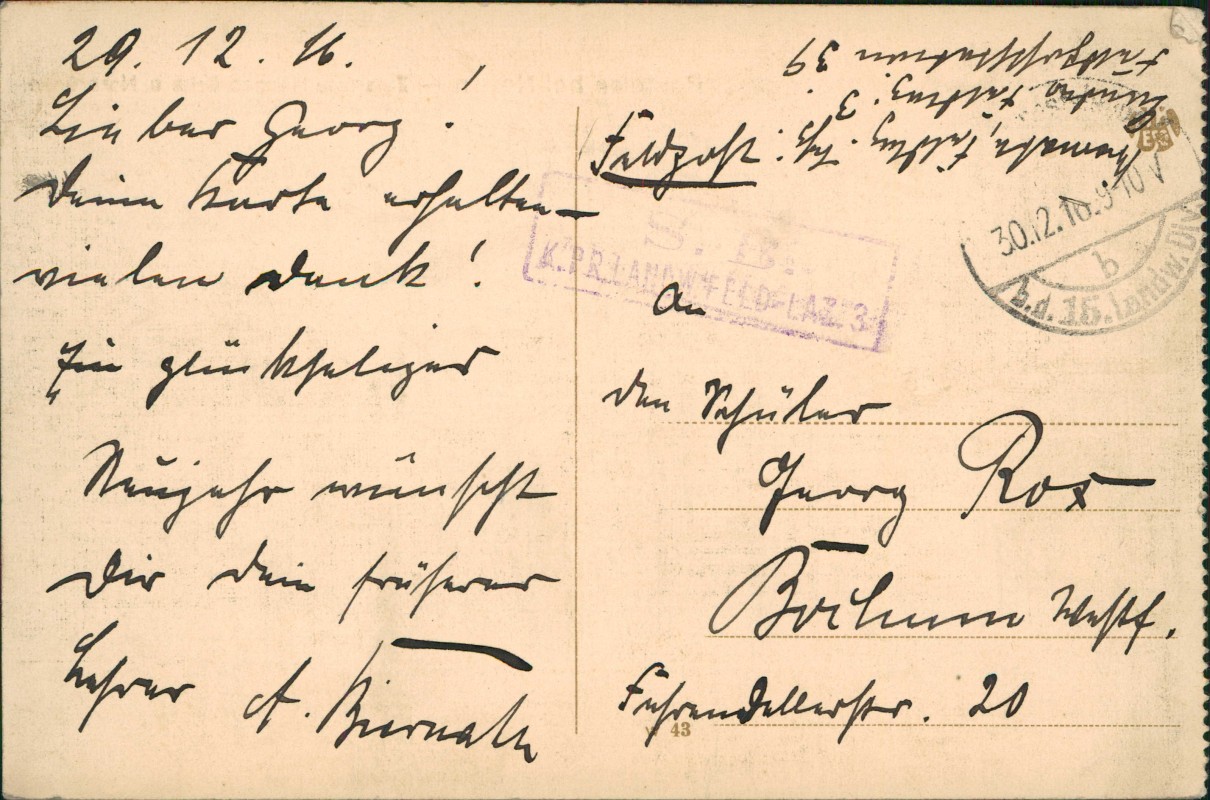 29. 12. 16.
Lieber Georg!
Deine Karte erhalten –
vielen Dank!
Ein glückseliges
Neujahr wünscht
Dir dein früherer
Lehrer A. Biernath
Feldpost
Feldlaz. 3.
Feldpoststation 39
S. B.
K. PR. LANDW. FELD-LAZ. 3
30.12.16. 9-10 V
b
b.d. 15. Landw. Div.
An
den Schüler
Georg Rox
Bochum Westf.
Fahrendellerstr. 20
43